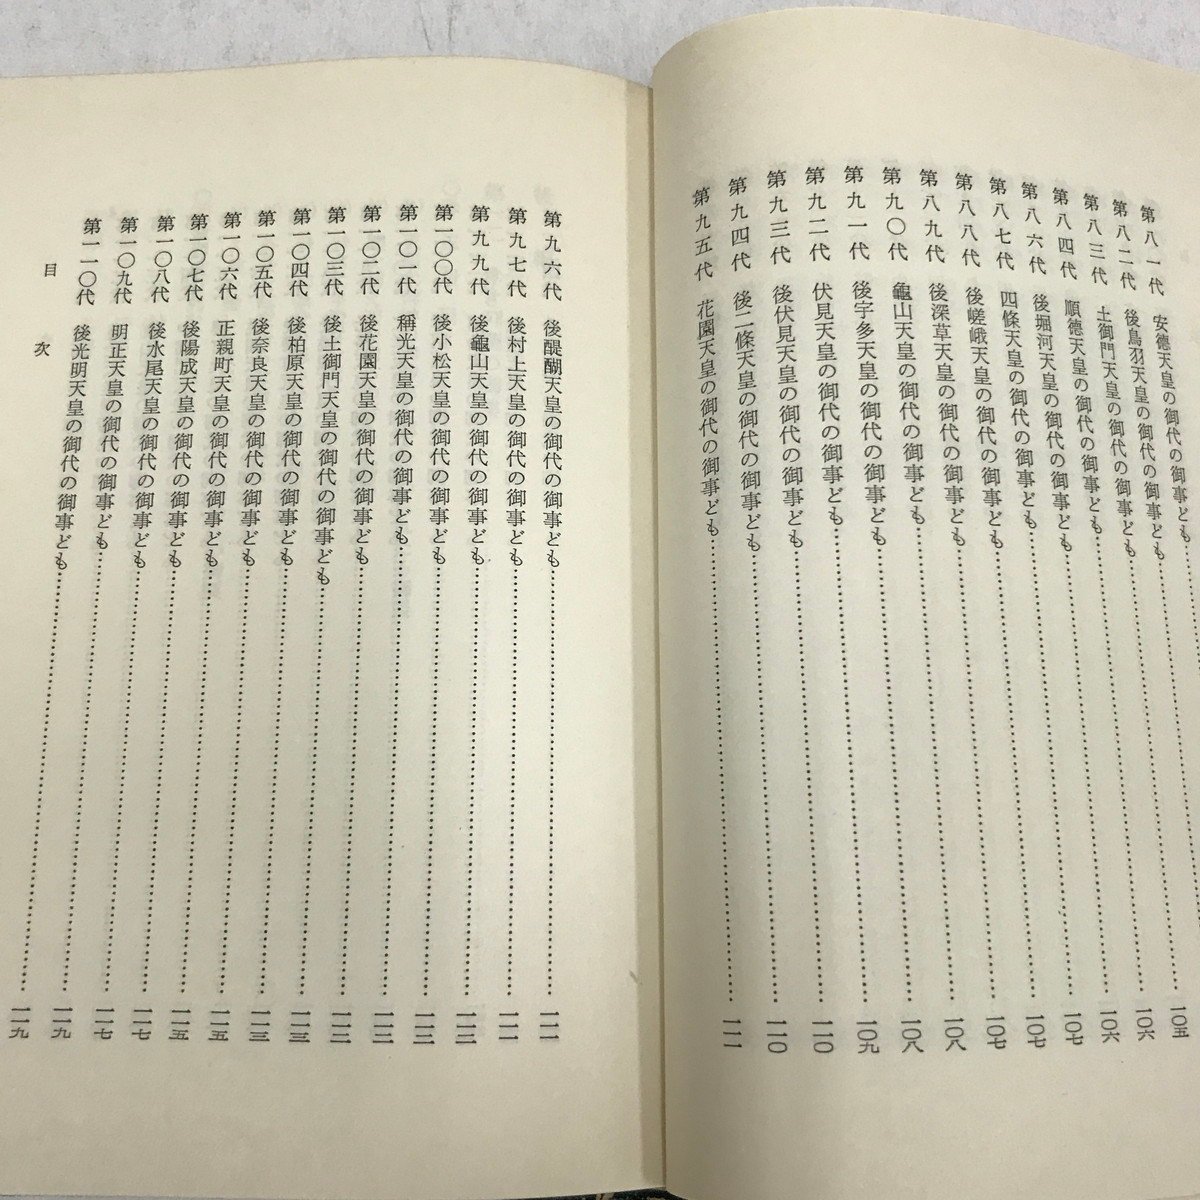 第八一代 安德天皇の御代の御事ども
第八二代 後鳥羽天皇の御代の御事ども
第八三代 土御門天皇の御代の御事ども……一〇五
第八四代 順德天皇の御代の御事ども……一〇六
第八六代 後堀河天皇の御代の御事ども……一〇六
第八七代 四條天皇の御代の御事ども……一〇七
第八八代 後嵯峨天皇の御代の御事ども……一〇七
第八九代 後深草天皇の御代の御事ども……一〇七
第九〇代 龜山天皇の御代の御事ども……一〇八
第九一代 後宇多天皇の御代の御事ども……一〇八
第九二代 伏見天皇の御代の御事ども……一〇九
第九三代 後伏見天皇の御代の御事ども……一一〇
第九四代 後二條天皇の御代の御事ども……一一〇
第九五代 花園天皇の御代の御事ども……一一一
第九六代 後醍醐天皇の御代の御事ども……一一一
第九七代 後村上天皇の御代の御事ども……一一一
第九九代 後龜山天皇の御代の御事ども……一一二
第一〇〇代 後小松天皇の御代の御事ども……一一二
第一〇一代 稱光天皇の御代の御事ども……一一二
第一〇二代 後花園天皇の御代の御事ども……一一二
第一〇三代 後土御門天皇の御代の御事ども……一一三
第一〇四代 後柏原天皇の御代の御事ども……一一三
第一〇五代 後奈良天皇の御代の御事ども……一一五
第一〇六代 正親町天皇の御代の御事ども……一一五
第一〇七代 後陽成天皇の御代の御事ども……一一七
第一〇八代 後水尾天皇の御代の御事ども……一一七
第一〇九代 明正天皇の御代の御事ども……一一九
第一一〇代 後光明天皇の御代の御事ども……一一九
目次